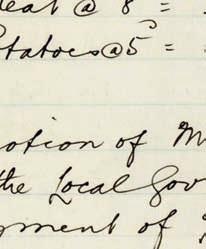 eat @ 8 =
otatoes @ 5 =
otion of M
the Local Gov
yment of